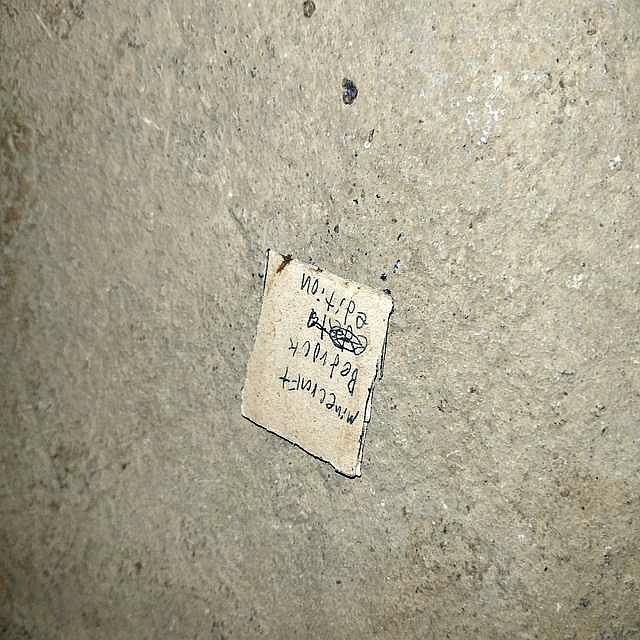 minecraft
Bedrock
edition